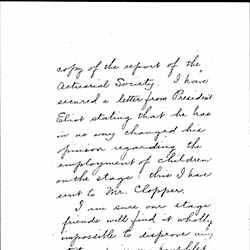 copy of the report of the
Actuarial Society. I have
secured a letter from President
Eliot stating that he has
in no way changed his
opinion regarding the
employment of children
on the stage; this I have
sent to Mr. Clopper.
I am sure our stage
friends will find it wholly
impossible to disprove any